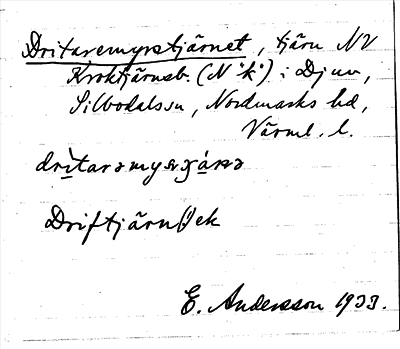 Dritaremyrstjärnet, tjärn NV
Kroktjärnsb. (N "k") i Djuv,
Silbodals sn, Nordmarks hd,
Värml. l.
dri̲tarəmysꭓá̲ṇə
Driftjärn() ek
E. Andersson 1933.